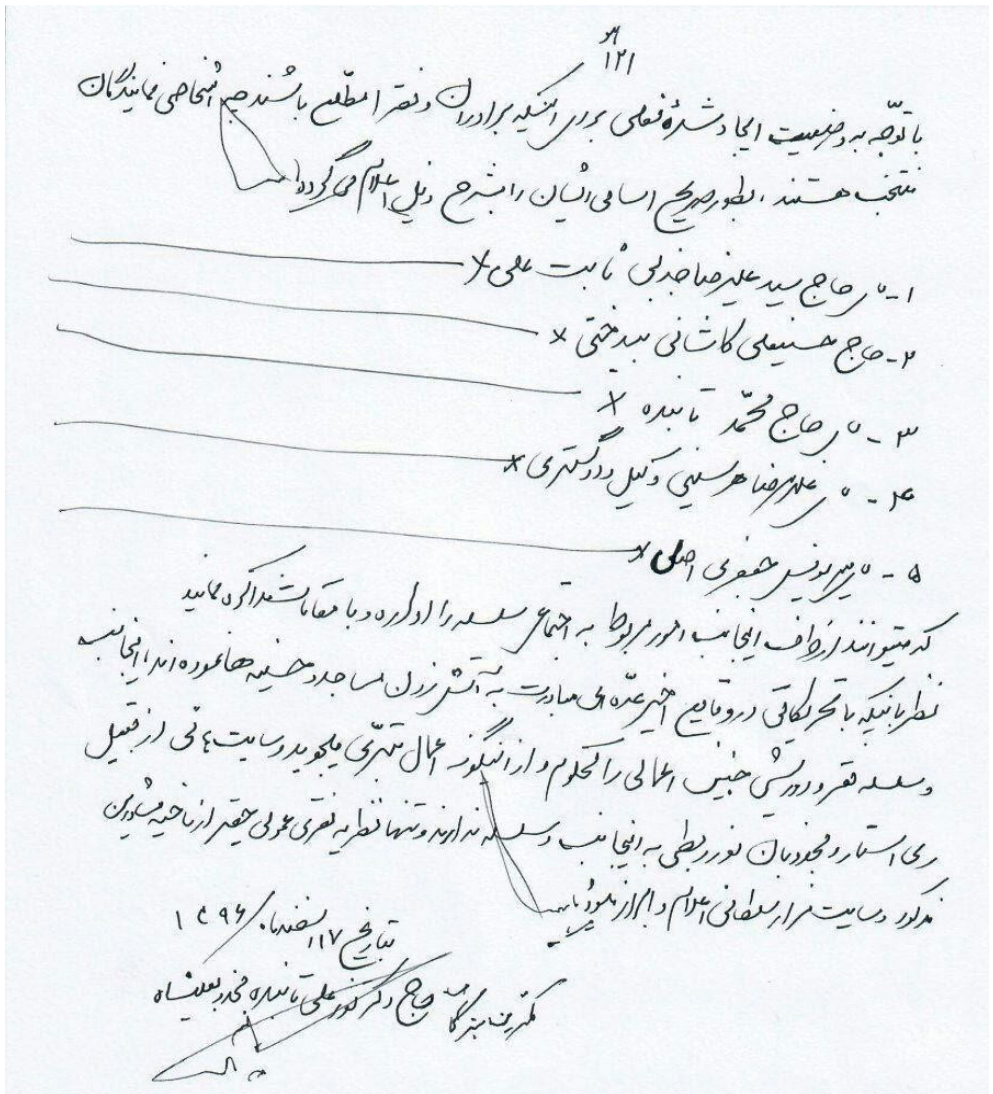 هو
۱۲۱
با توجّه به وضعیت ایجاد شدهٔ فعلی برای اینکه برادران و فقرا مطّلع باشند چه اشخاصی نمایندگان
منتخب هستند، بطور صریح اسامی ایشان را بشرح ذیل اعلام می‌گردد
۱- حاج سید علیرضا جذبی ثابت علی ×
۲- حاج حسینعلی کاشانی بیدختی ×
۳- حاج محمّد تابنده ×
۴- علیرضا هرسینی وکیل دادگستری ×
۵- میر یونس جعفری اصل ×
که میتوانند از طرف اینجانب امور مربوط به اجتماعی سلسله را اداره و با مقامات مذاکره نمایند
نظر باینکه با تحریکاتی در وقایع اخیر عدّه‌ای مبادرت به آتش زدن مساجد و حسینیه ها نموده اند، اینجانب
و سلسله فقر و درویشی چنین اعمالی را محکوم و از اینگونه اعمال تبرّی میجوید و سایت هائی از قبیل
ری استار و مجذوبان نور ربطی به اینجانب و سلسله ندارند و تنها نظریه فقری عمومی حقیر از ناحیه مشاورین
مذکور و سایت مزار سلطانی اعلام و ابراز
بتاریخ ۱۷ اسفندماه ۱۳۹۶
کمترین بندگان حاج دکتر نورعلی تابنده مجذوبعلیشاه